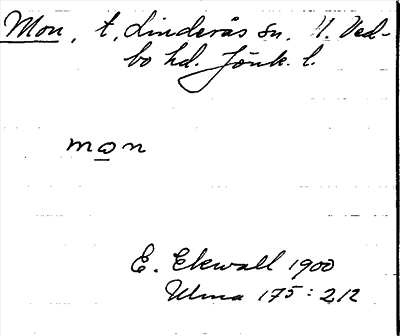 Mon, t, Linderås sn. N. Ved-
bo hd. Jönk. l.
mon
E. Ekwall 1900
Ulma 175:212